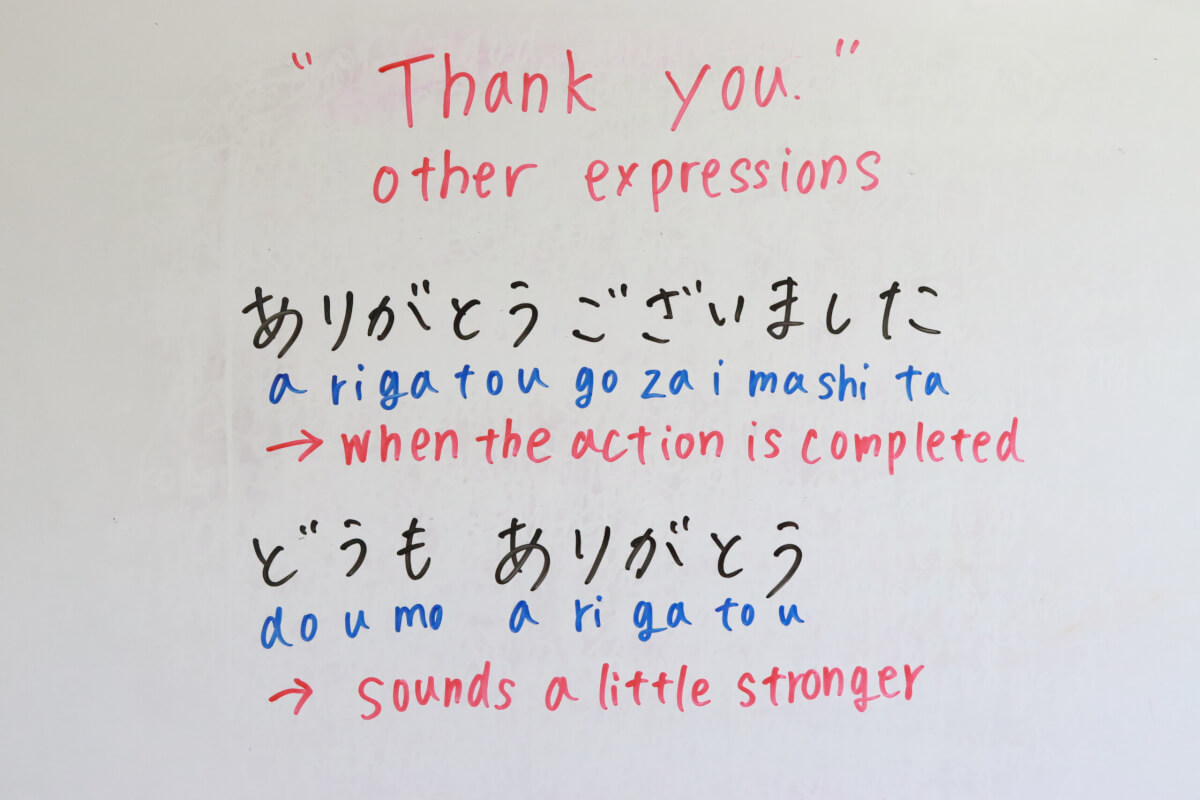 "Thank you."
other expressions
ありがとう ございました
a ri ga to u go za i mashi ta
→ when the action is completed
どうも ありがとう
do u mo a ri ga to u
→ sounds a little stronger